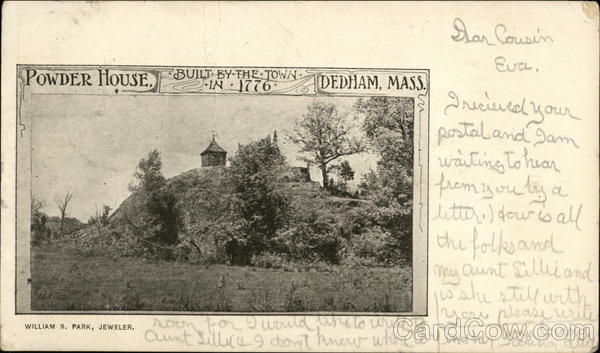 POWDER HOUSE.
BUILT BY THE TOWN
IN 1776
DEDHAM, MASS.
WILLIAM S. PARK, JEWELER.
Dear Cousin
Eva,
I recieved your
postal and I am
waiting to hear
from you by a
letter. How is all
the folks and
my aunt Lillie and
is she still with
you, please write
soon for I would like to write
Aunt Lillie & I don't know
CardCow.com